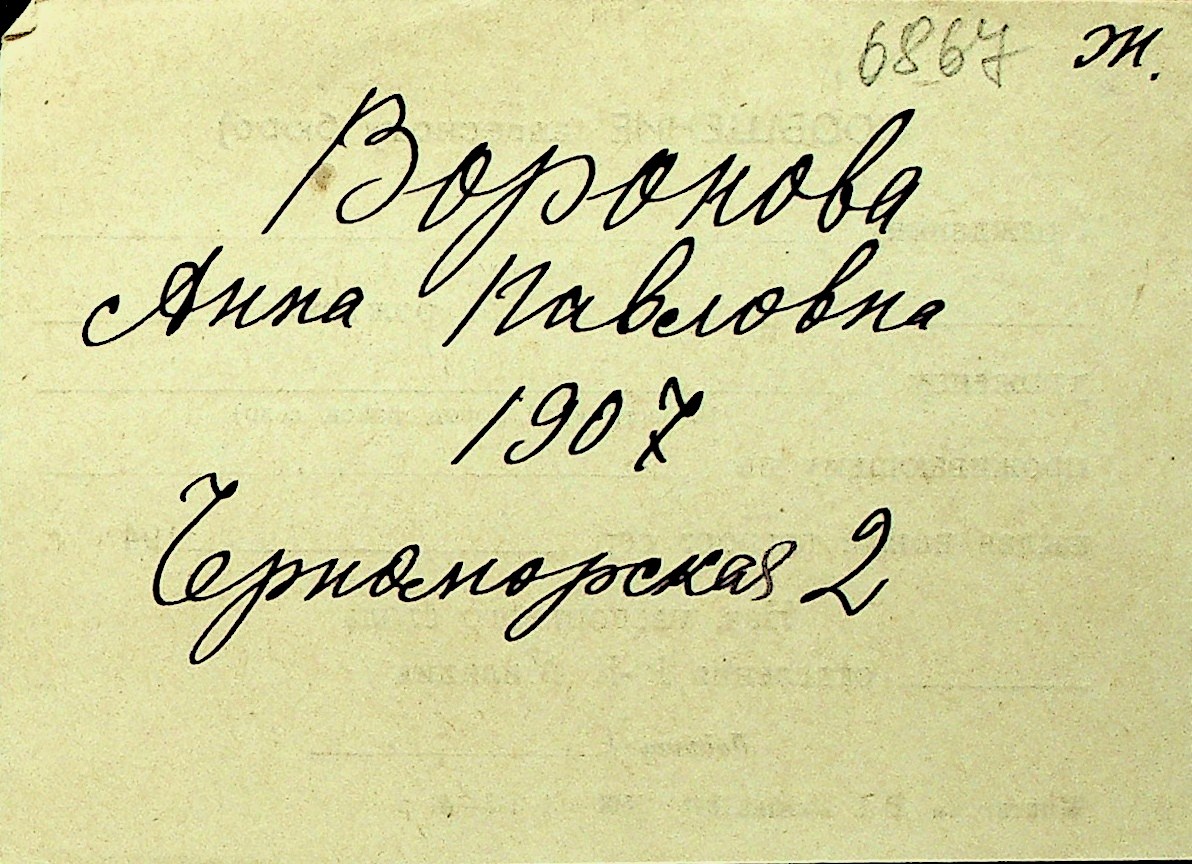 6867 ж.
Воронова
Анна Павловна
1907
Черноморская 2